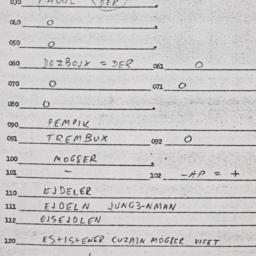 040 O
050 O
060 DOZBOJX = DER 061 O
070 O 071 O
080 O
090 PEMPIK
091 TREMBUX 092 O
100 MOGGER
101 - 102 -AP = +
110 EJDELER
111 EJDELN JUNG3-NMAN
112 OJSEJDLEN
120 ES+IS+ENER CUZAJN MOGGER VIFET